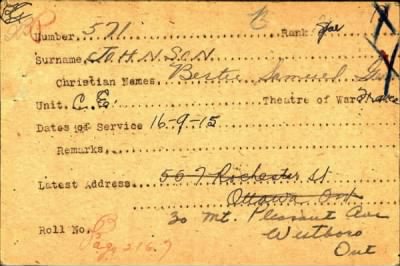 Number 571 Rank Spr
Surname JOHNSON
Christian Names Bertie Samuel
Unit C.E. Theatre of War France
Dates of Service 16-9-15
Remarks
Latest Address 557 Rochester St
Ottawa Ont
30 Mt. Pleasant Ave
Westboro
Ont
Roll No. B
Page 2167